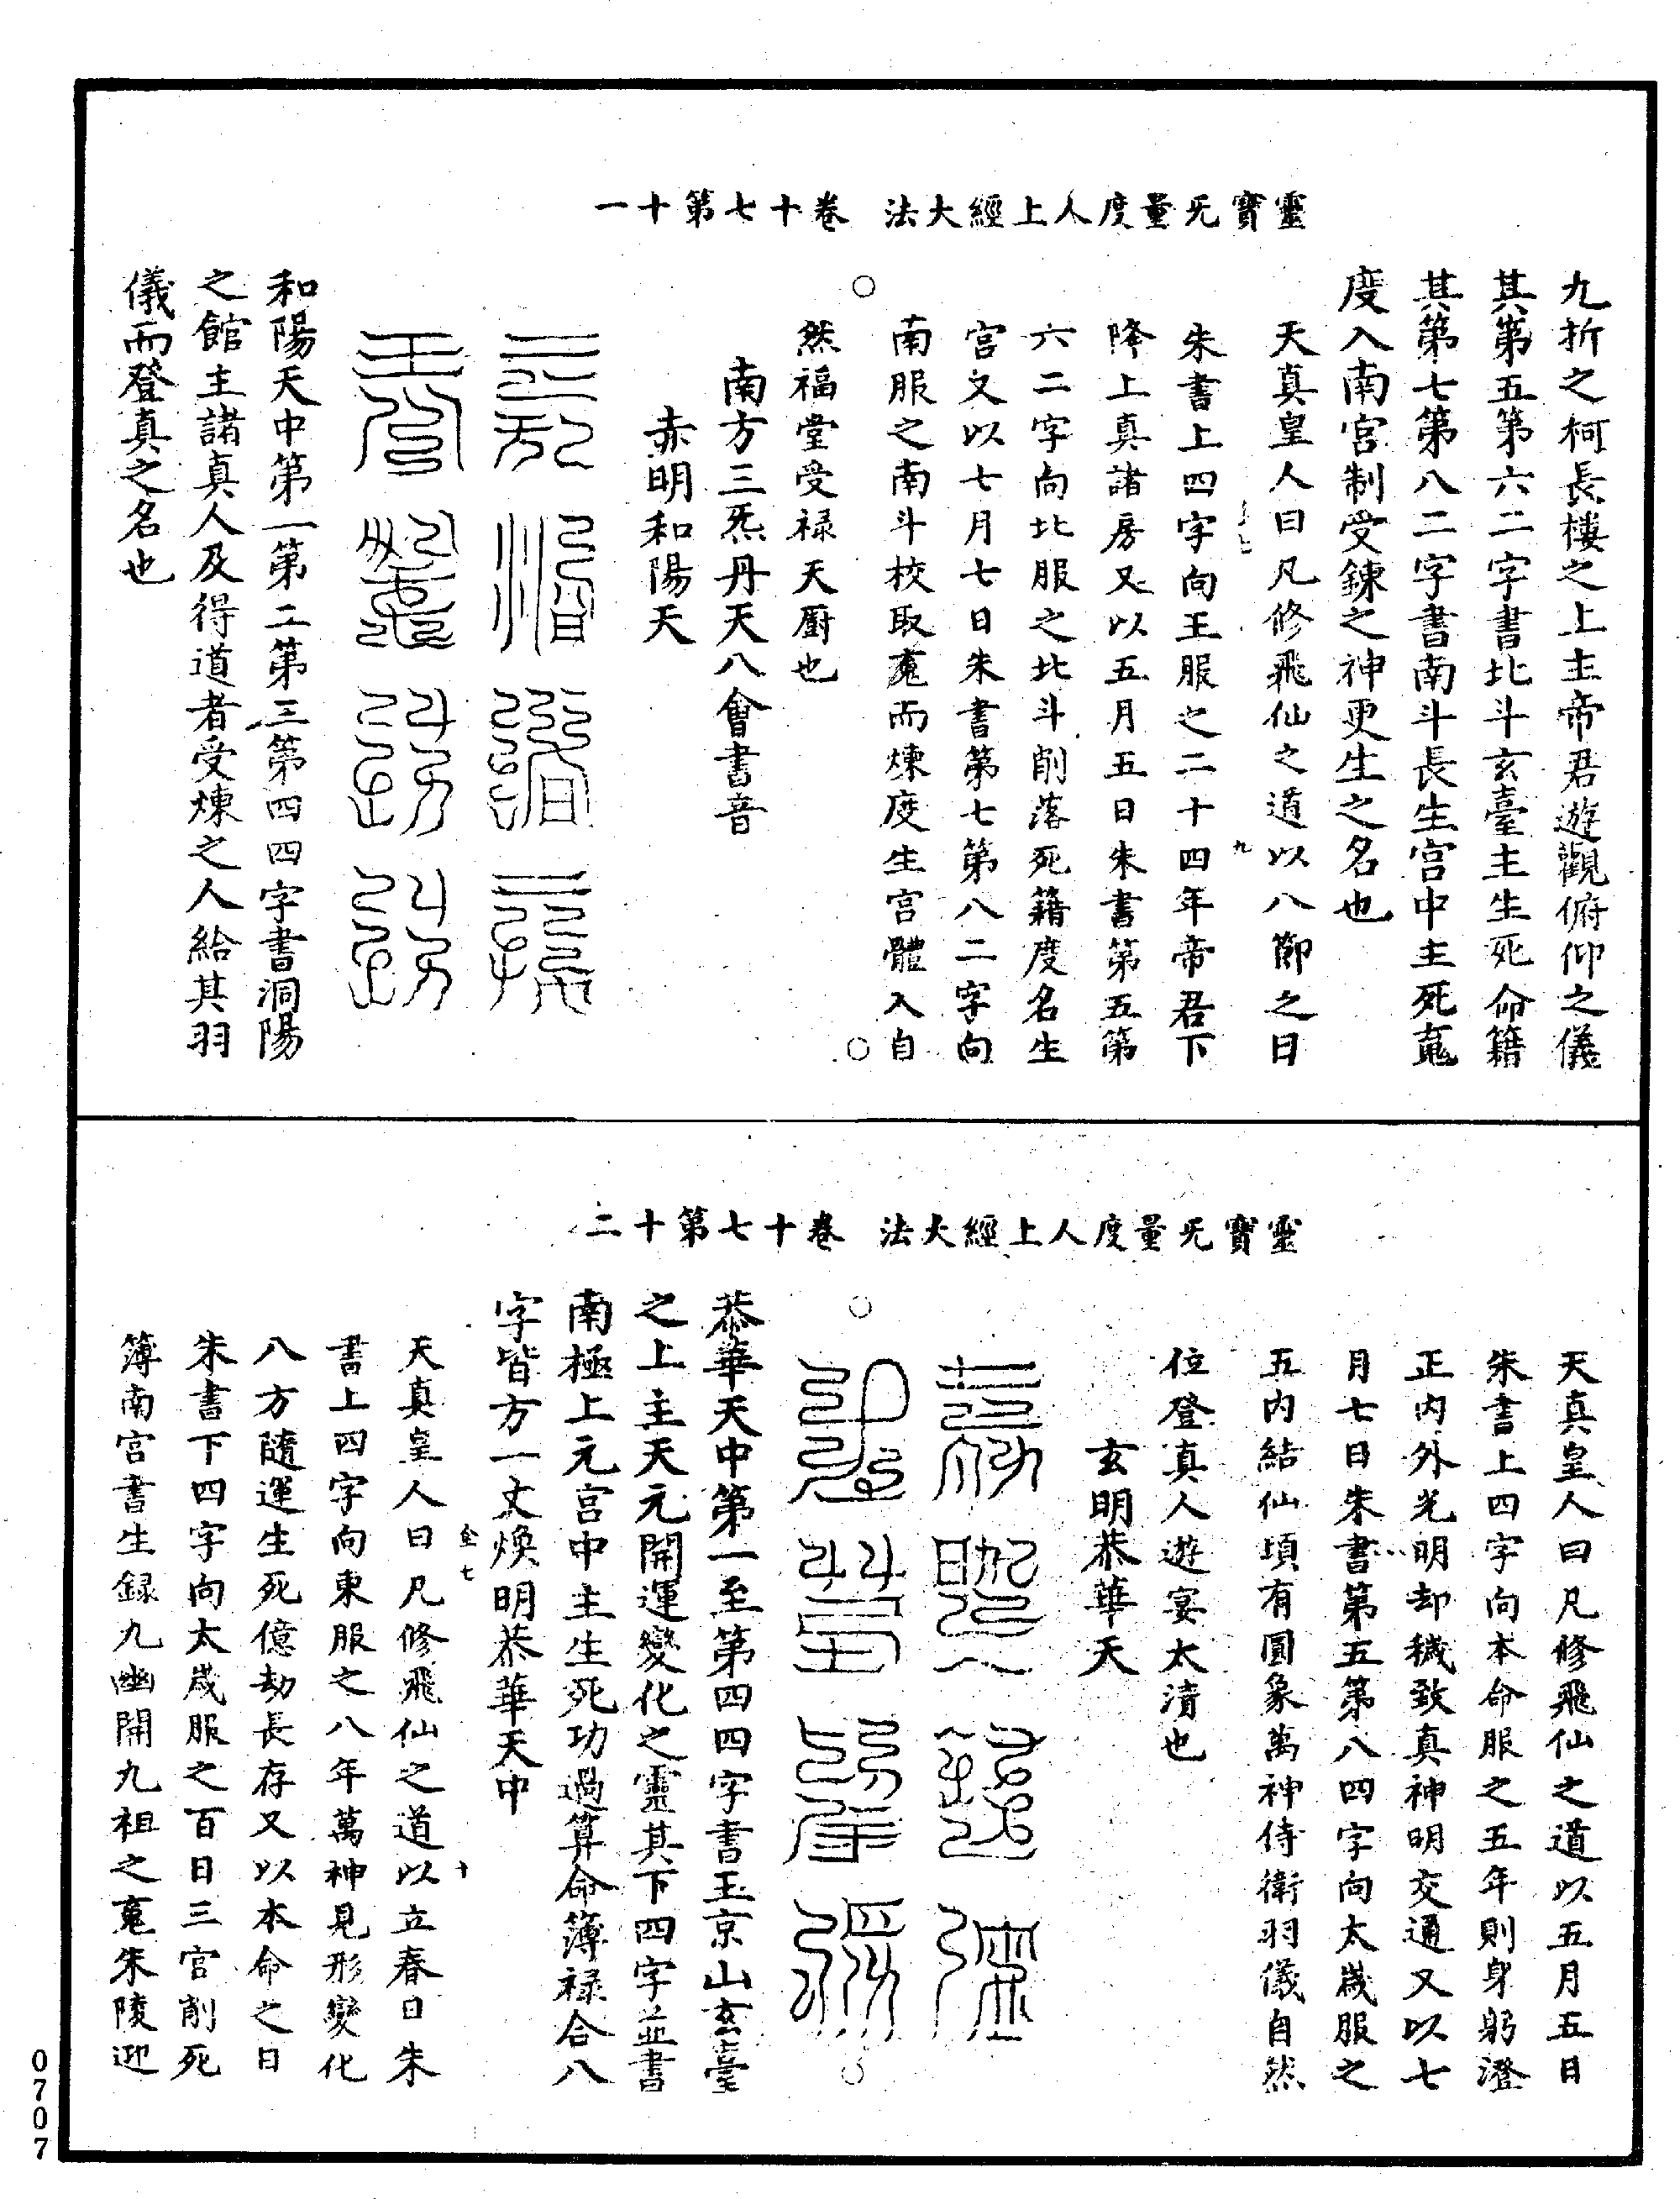 靈寶旡量度人上經大法 卷十七第十一
九折之柯長樓之上主帝君遊觀俯仰之儀
其第五第六二字書北斗玄臺主生死命籍
其第七第八二字書南斗長生宮中主死䰟
度入南宮制受鍊之神更生之名也
天真皇人曰凡修飛仙之道以八節之日
九
朱書上四字向王服之二十四年帝君下
降上真諸房又以五月五日朱書第五第
六二字向北服之北斗削落死籍度名生
宮又以七月七日朱書第七第八二字向
南服之南斗校取䰟而煉度生宮體入自
然福堂受禄天廚也
南方三炁丹天八會書音
赤明和陽天
和陽天中第一第二第三第四四字書洞陽
之館主諸真人及得道者受煉之人給其羽
儀而登真之名也
靈寶旡量度人上經大法 卷十七第十二
天真皇人曰凡修飛仙之道以五月五日
朱書上四字向本命服之五年則身躬澄
正內外光明却穢致真神明交通又以七
月七日朱書第五第八四字向太歲服之
五內結仙頃有圓象萬神侍衛羽儀自然
位登真人遊宴太清也
玄明恭華天
恭華天中第一至第四四字書玉京山玄臺
之上主天元開運變化之靈其下四字並書
南極上元宮中主生死功過算命簿禄合八
字皆方一丈煥明恭華天中
十
天真皇人曰凡修飛仙之道以立春日朱
書上四字向東服之八年萬神見形變化
八方隨運生死億劫長存又以本命之日
朱書下四字向太歲服之百日三官削死
簿南宮書生録九幽開九祖之䰟朱陵迎
0707